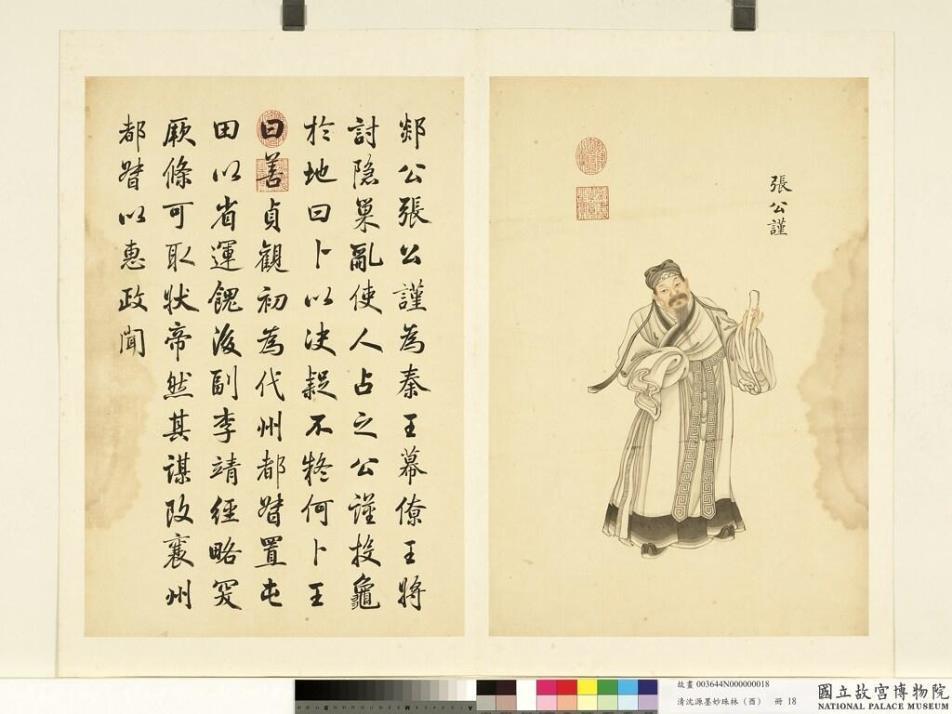 張公謹
郯公張公謹為秦王幕僚王將
討隱巢亂使人占之公謹投龜
於地曰卜以決疑不疑何卜王
曰善貞觀初為代州都督置屯
田以省運餽後副李靖經略突
厥條可取狀帝然其謀改襄州
都督以惠政聞
故畫 003644N000000018
清沈源墨妙珠林(酉) 冊 18
國立故宮博物院
NATIONAL PALACE MUSEUM